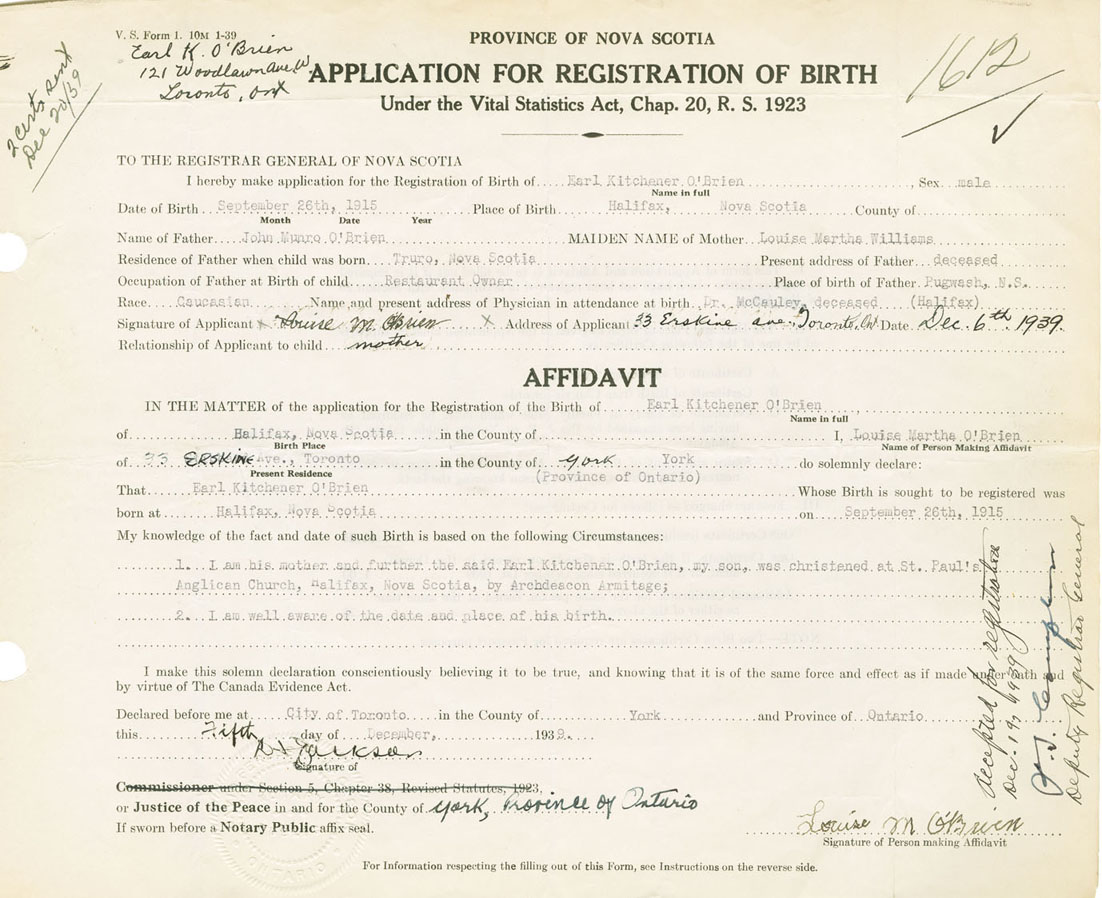 V. S. Form 1. 10M 1-39
Earl K. O'Brien
121 Woodlawn Ave W
Toronto, Ont
2 certs sent
Dec 20/39
PROVINCE OF NOVA SCOTIA
APPLICATION FOR REGISTRATION OF BIRTH
Under the Vital Statistics Act, Chap. 20, R. S. 1923
1612
TO THE REGISTRAR GENERAL OF NOVA SCOTIA
I hereby make application for the Registration of Birth of Earl Kitchener O'Brien, Sex male
Name in full
Date of Birth September 26th, 1915 Place of Birth Halifax, Nova Scotia County of
Month Date Year
Name of Father John Munro O'Brien MAIDEN NAME of Mother Louise Martha Williams
Residence of Father when child was born Truro, Nova Scotia Present address of Father deceased
Occupation of Father at Birth of child Restaurant Owner Place of birth of Father Pugwash, N.S.
Race Caucasian Name and present address of Physician in attendance at birth Dr. McCauley, deceased (Halifax)
Signature of Applicant x Louise M O'Brien x Address of Applicant 33 Erskine ave., Toronto, Ont Date Dec. 6th 1939.
Relationship of Applicant to child mother
AFFIDAVIT
IN THE MATTER of the application for the Registration of the Birth of Earl Kitchener O'Brien
Name in full
of Halifax, Nova Scotia in the County of I, Louise Martha O'Brien
Birth Place Name of Person Making Affidavit
of 33 ERSKINE Ave., Toronto in the County of York York do solemnly declare:
Present Residence (Province of Ontario)
That Earl Kitchener O'Brien Whose Birth is sought to be registered was
born at Halifax, Nova Scotia on September 26th, 1915
My knowledge of the fact and date of such Birth is based on the following Circumstances:
1. I am his mother and further the said Earl Kitchener O'Brien, my son, was christened at St. Paul's
Anglican Church, Halifax, Nova Scotia, by Archdeacon Armitage;
2. I am well aware of the date and place of his birth.
I make this solemn declaration conscientiously believing it to be true, and knowing that it is of the same force and effect as if made under oath and
by virtue of The Canada Evidence Act.
Declared before me at City of Toronto in the County of York and Province of Ontario
this Fifth day of December, 1939.
Jackson
Signature of
Commissioner under Section 5, Chapter 38, Revised Statutes, 1923,
or Justice of the Peace in and for the County of York, Province of Ontario
If sworn before a Notary Public affix seal.
Louise M O'Brien
Signature of Person making Affidavit
accepted for registration
Dec. 19, 1939
Deputy Registrar General
For Information respecting the filling out of this Form, see Instructions on the reverse side.